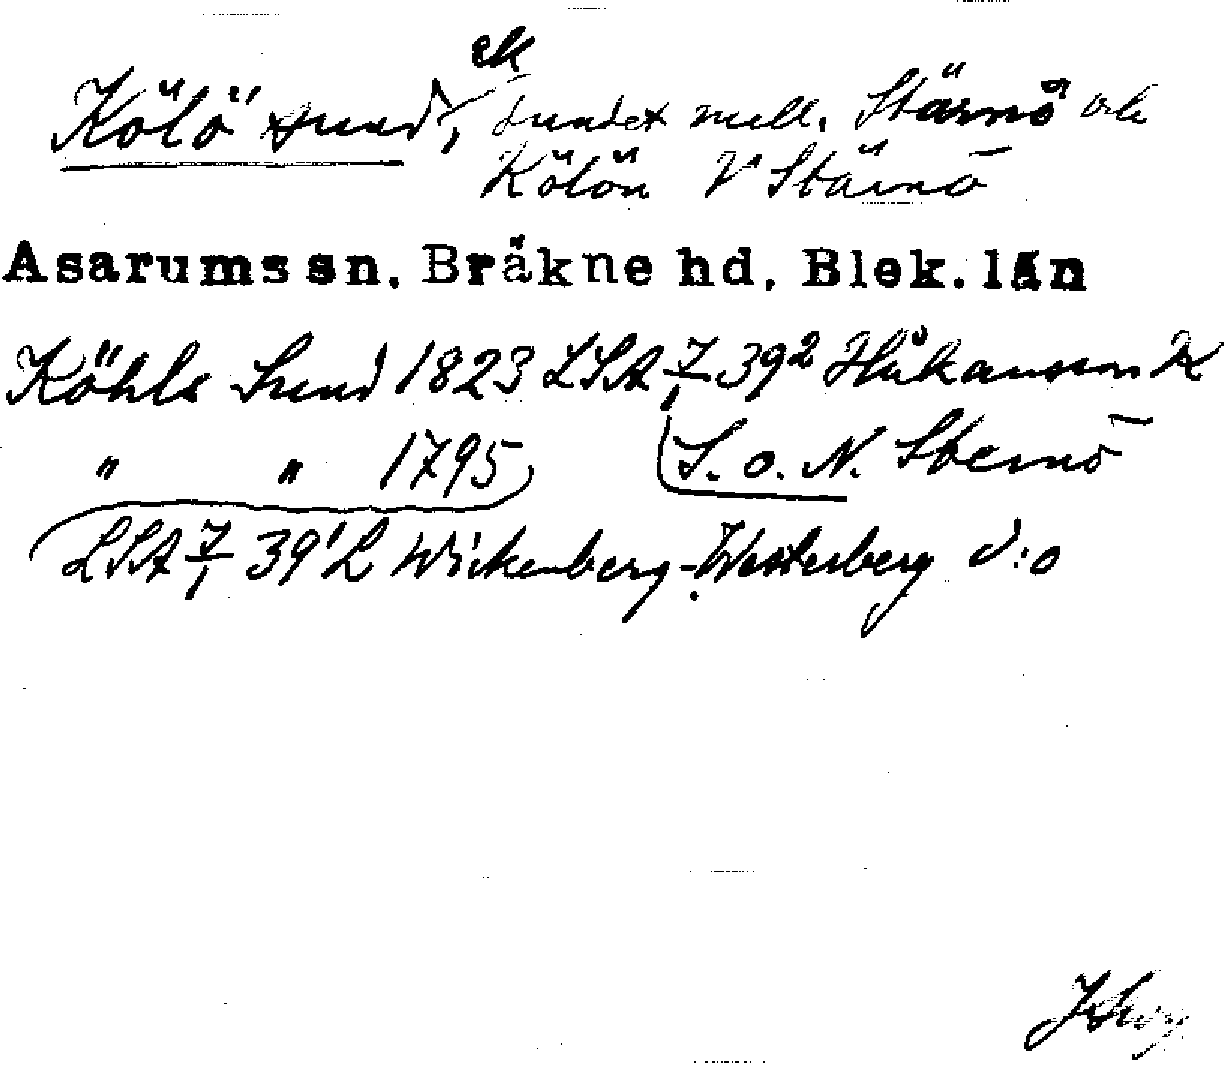 ek
Kölö sund, sundet mell. Stärnö och
Kölön V Stärnö
Asarums sn. Bräkne hd. Blek. län
Köhls Sund 1823 LSA 7/1 39² Håkansson K
" " 1795 S. o. N. Sternö
LSA 7/1 39¹ L Wickenberg-Westerberg d:o